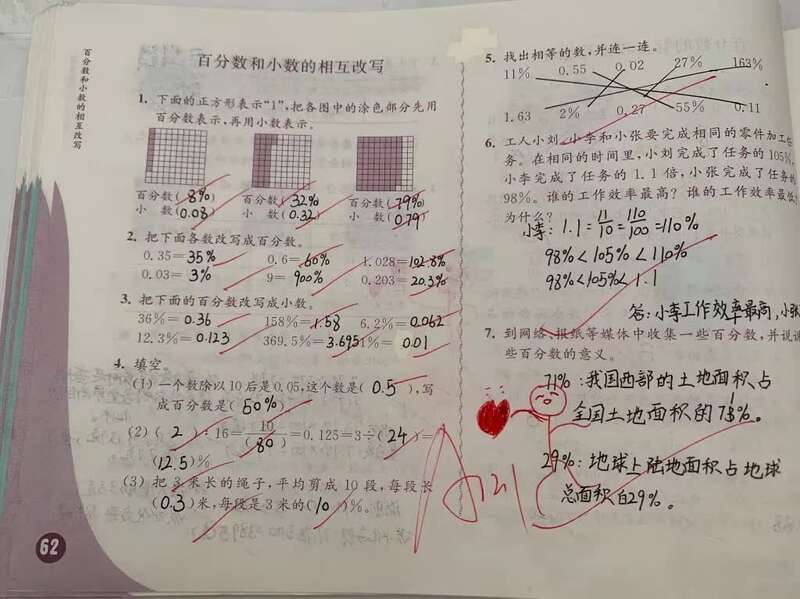 百分数和小数的相互改写
百分数和小数的相互改写
1. 下面的正方形表示“1”,把各图中的涂色部分先用
百分数表示,再用小数表示。
百分数(8%) 百分数(32%) 百分数(79%)
小 数(0.08) 小 数(0.32) 小 数(0.79)
2. 把下面各数改写成百分数。
0.35=35% 0.6=60% 1.028=102.8%
0.03=3% 9=900% 0.203=20.3%
3. 把下面的百分数改写成小数。
36%=0.36 158%=1.58 6.2%=0.062
12.3%=0.123 369.5%=3.695 1%=0.01
4. 填空。
(1) 一个数除以10后是0.05,这个数是(0.5),写
成百分数是(50%)
(2) (2):16=10/(80)=0.125=3÷(24)=
(12.5)%
(3) 把3米长的绳子,平均剪成10段,每段长
(0.3)米,每段是3米的(10)%。
62
5. 找出相等的数,并连一连。
11% 0.55 0.02 27% 163%
1.63 2% 0.27 55% 0.11
6. 工人小刘、小李和小张要完成相同的零件加工任
务。在相同的时间里,小刘完成了任务的105%,
小李完成了任务的1.1倍,小张完成了任务的
98%。谁的工作效率最高?谁的工作效率最低?
为什么?
小李:1.1=11/10=110/100=110%
98%<105%<110%
98%<105%<1.1
答:小李工作效率最高,小张
7. 到网络、报纸等媒体中收集一些百分数,并说说
些百分数的意义。
71%:我国西部的土地面积占
全国土地面积的71%。
29%:地球上陆地面积占地球
总面积白29%。